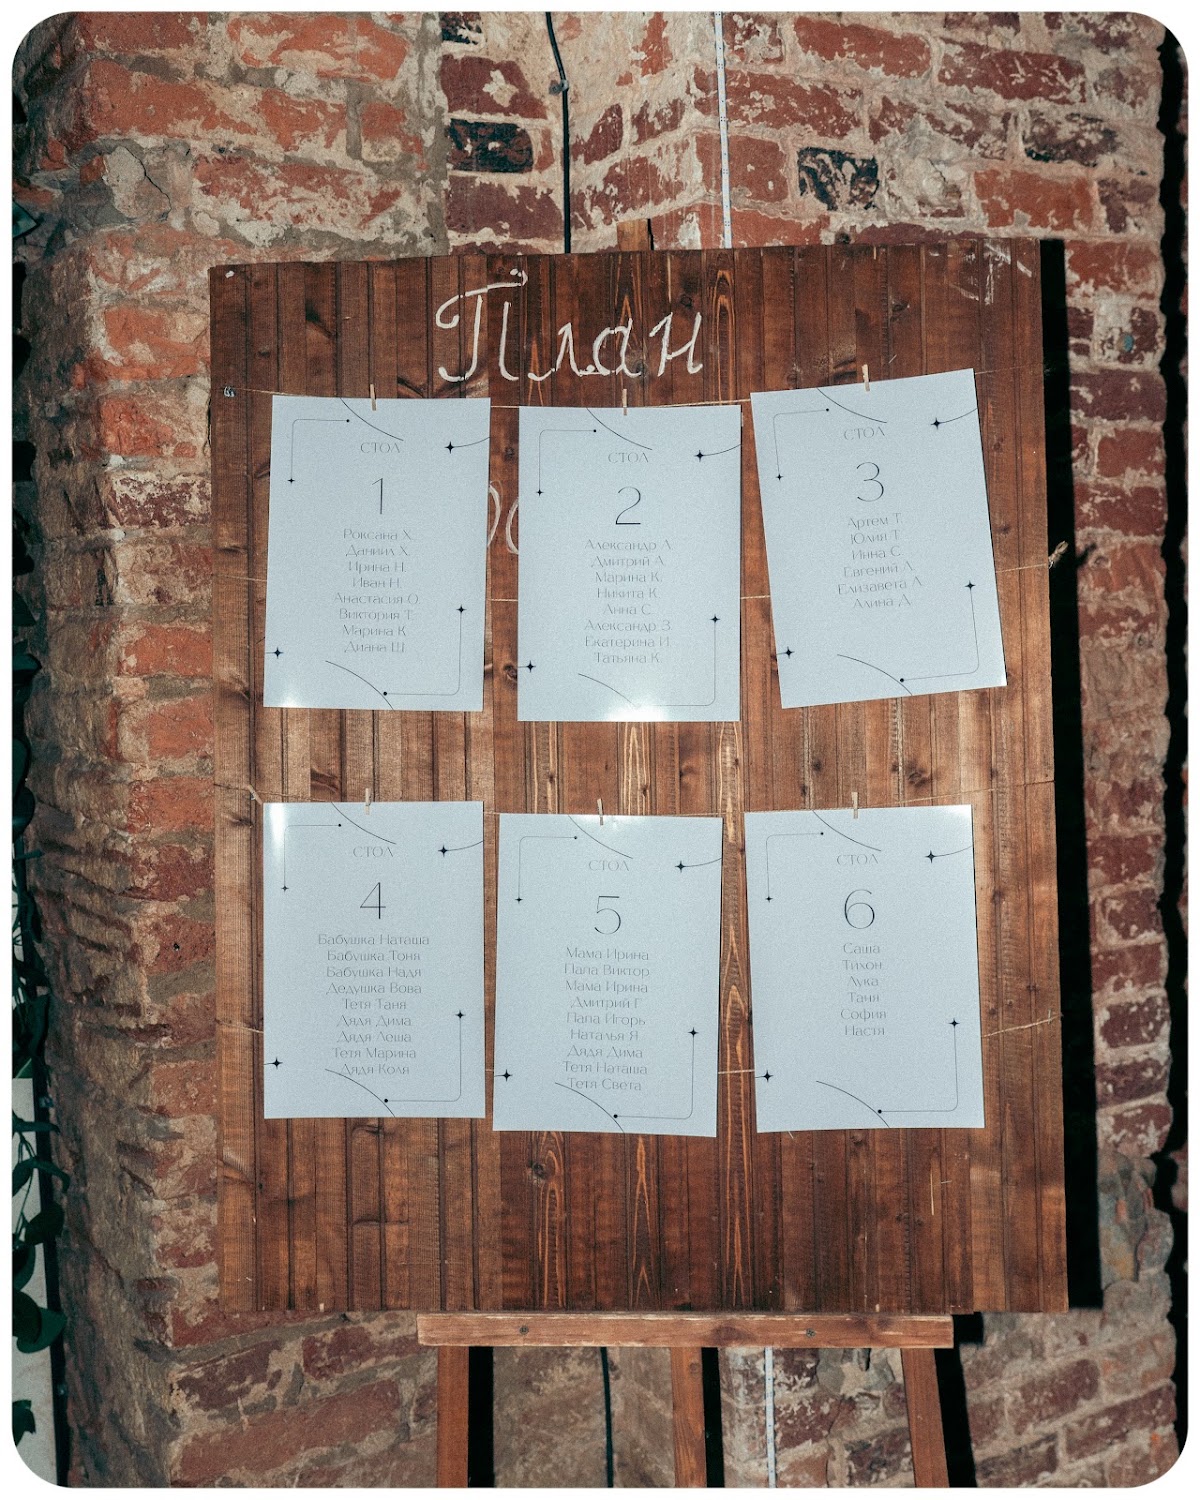 План
СТОЛ
1
Роксана Х.
Даниил Х.
Ирина Н.
Иван Н.
Анастасия О.
Виктория Т.
Марина К.
Диана Ш.
СТОЛ
2
Александр Л.
Дмитрий А.
Марина К.
Никита К.
Анна С.
Александр З.
Екатерина И.
Татьяна К.
СТОЛ
3
Артем Т.
Юлия Т.
Инна С.
Евгений Л.
Елизавета Л.
Алина Д.
СТОЛ
4
Бабушка Наташа
Бабушка Тоня
Бабушка Надя
Дедушка Вова
Тетя Таня
Дядя Дима
Дядя Леша
Тетя Марина
Дядя Коля
СТОЛ
5
Мама Ирина
Папа Виктор
Мама Ирина
Дмитрий Г.
Папа Игорь
Наталья Я.
Дядя Дима
Тетя Наташа
Тетя Света
СТОЛ
6
Саша
Тихон
Лука
Таня
София
Настя